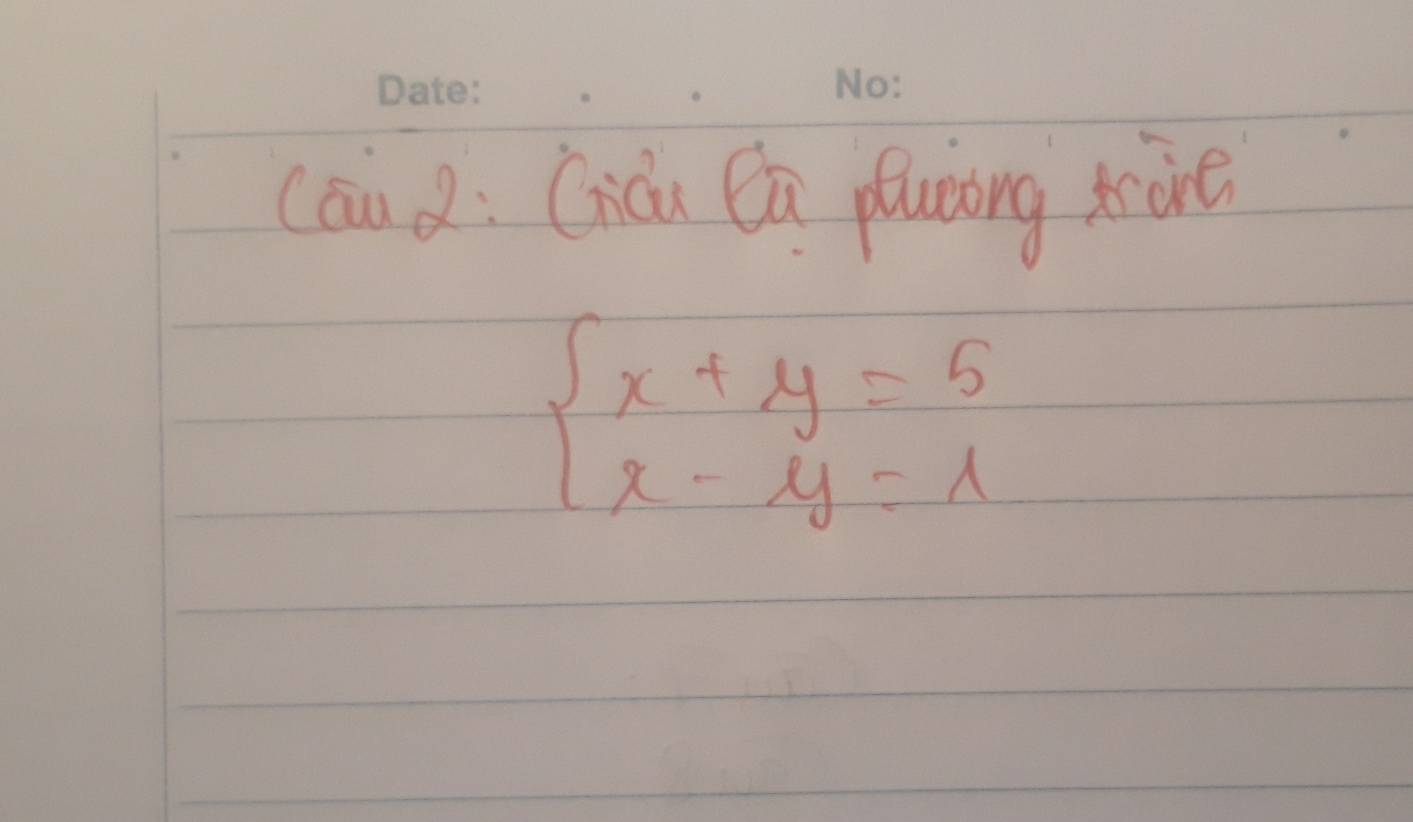 Date: . . No:
Câu 2: Giải hệ phương trình
x + y = 5
x - y = 1